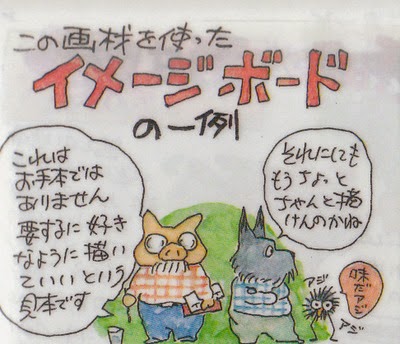 この画材を使った
イメージボード
の一例
これは
お手本では
ありません
要するに好き
なように描い
ていいという
見本です
それにしても
もうちょっと
ちゃんと描
けんのかね
アジ
味だアジ
アジ